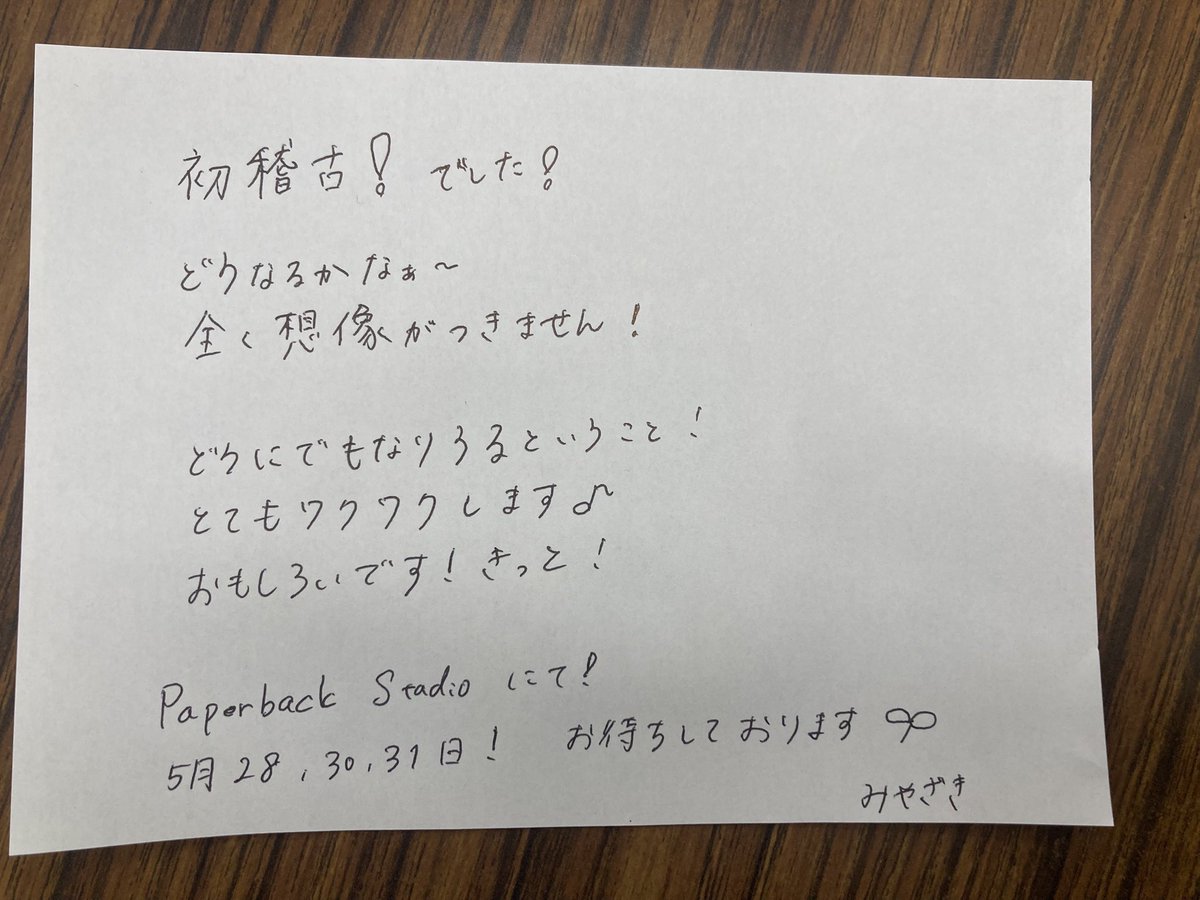 初稽古！でした！
どうなるかなぁ～
全く想像がつきません！
どうにでもなりうるということ！
とてもワクワクします♪
おもしろいです！きっと！
Paperback Stadio にて！
5月28，30，31日！ お待ちしております
みやざき